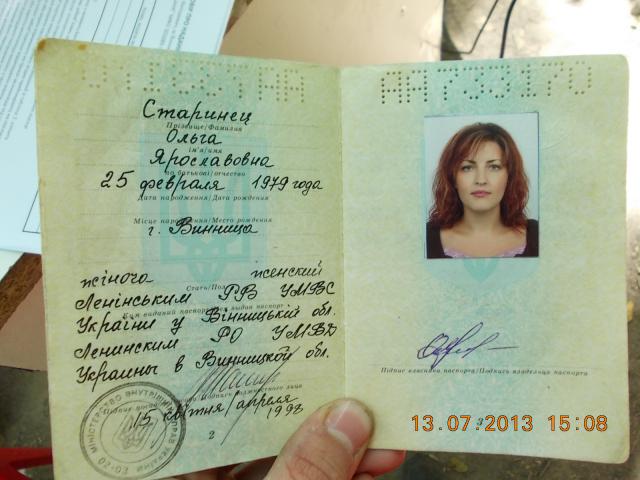 АА733170
Старинец
Прізвище/Фамилия
Ольга
ім'я/имя
Ярославовна
по батькові/отчество
25 февраля 1979 года
Дата народження/Дата рождения
Місце народження/Место рождения
г. Винница
жіноча женский
Стать/Пол
Ленінським РВ УМВС
України у Вінницькій обл.
Ленинским РО УМВД
Украины в Винницкой обл.
15 квітня/апреля
1998
2
МІНІСТЕРСТВО ВНУТРІШНІХ СПРАВ УКРАЇНИ
Підпис власника паспорта/Подпись владельца паспорта
13.07.2013 15:08